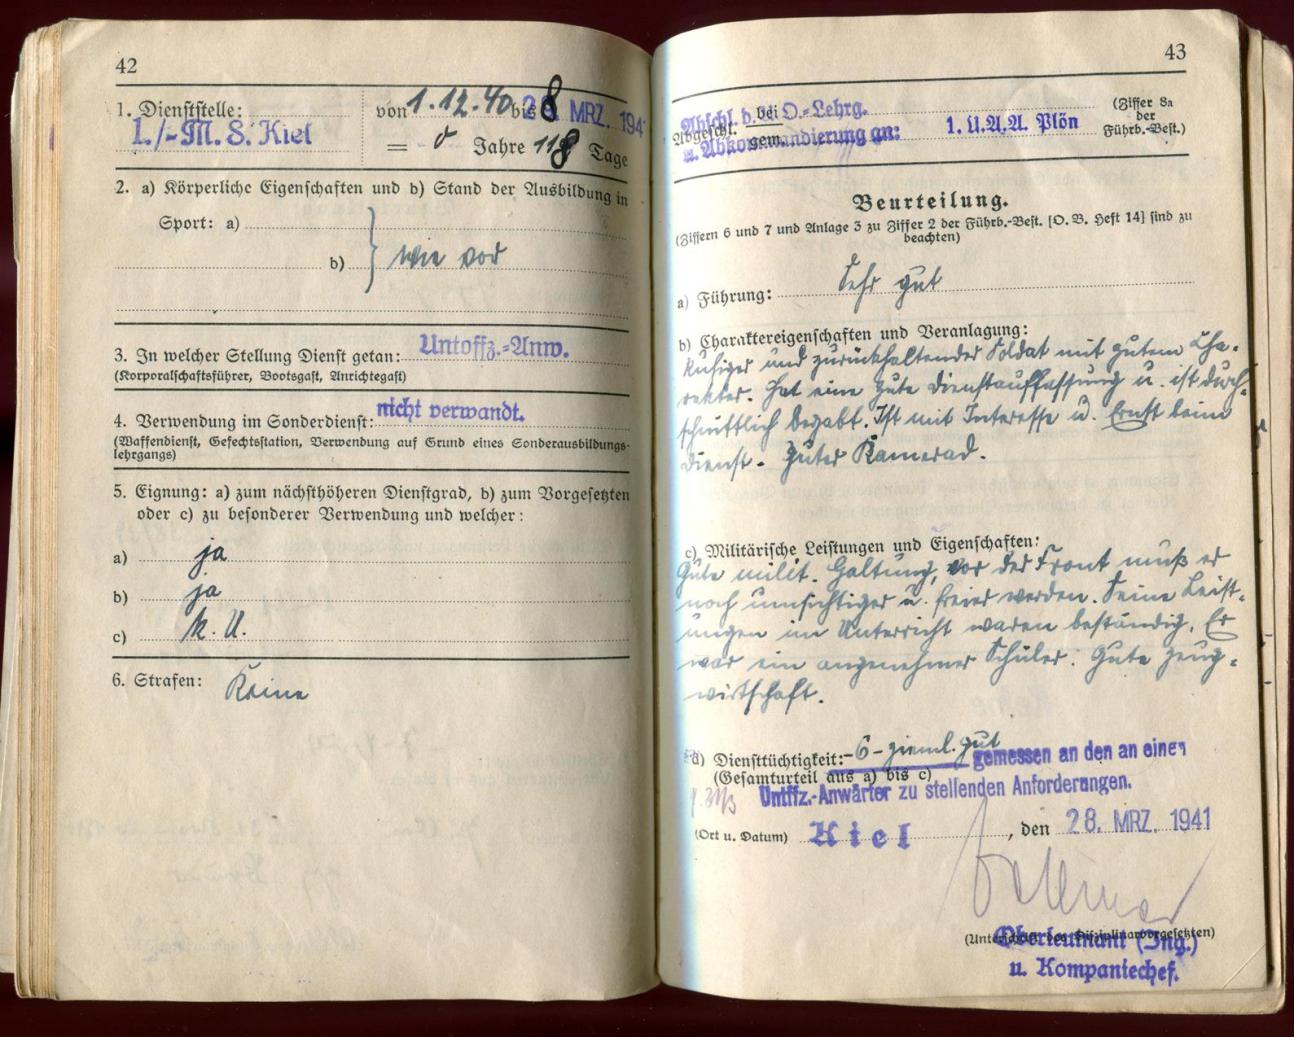 42
1. Dienststelle:
I./-M. S. Kiel
von 1.12.40 bis 28. MRZ. 194
= 0 Jahre 118 Tage
2. a) Körperliche Eigenschaften und b) Stand der Ausbildung in
Sport: a)
b) } wie vor
3. In welcher Stellung Dienst getan: Untoffz.-Anw.
(Korporalschaftsführer, Bootsgast, Anrichtegast)
4. Verwendung im Sonderdienst: nicht verwandt.
(Waffendienst, Gefechtsstation, Verwendung auf Grund eines Sonderausbildungs-
lehrgangs)
5. Eignung: a) zum nächsthöheren Dienstgrad, b) zum Vorgesetzten
oder c) zu besonderer Verwendung und welcher:
a) ja
b) ja
c) k. U.
6. Strafen: Keine
43
Abschl. d. U. O.-Lehrg.
Abgeschl. bei
gem.
u. Abkommandierung an: 1. U.A.A. Plön
(Ziffer 8a
der
Führb.-Best.)
Beurteilung.
(Ziffern 6 und 7 und Anlage 3 zu Ziffer 2 der Führb.-Best. [O. B. Heft 14] sind zu
beachten)
a) Führung: Sehr gut
b) Charaktereigenschaften und Veranlagung:
Ruhiger und zurückhaltender Soldat mit gutem Cha-
rakter. Hat eine gute Dienstauffassung u. ist durch-
schnittlich begabt. Ist mit Interesse u. Ernst beim
Dienst. Guter Kamerad.
c) Militärische Leistungen und Eigenschaften:
Gute milit. Haltung, vor der Front muß er
noch umsichtiger u. freier werden. Seine Leist-
ungen im Unterricht waren beständig. Er
war ein angenehmer Schüler. Gute Zeug-
wirtschaft.
d) Diensttüchtigkeit: -6- zieml. gut gemessen an den an einen
(Gesamturteil aus a) bis c)
Untffz.-Anwärter zu stellenden Anforderungen.
(Ort u. Datum) Kiel, den 28. MRZ. 1941
(Unterschrift des Disziplinarvorgesetzten)
Oberleutnant (Ing.)
u. Kompaniechef.